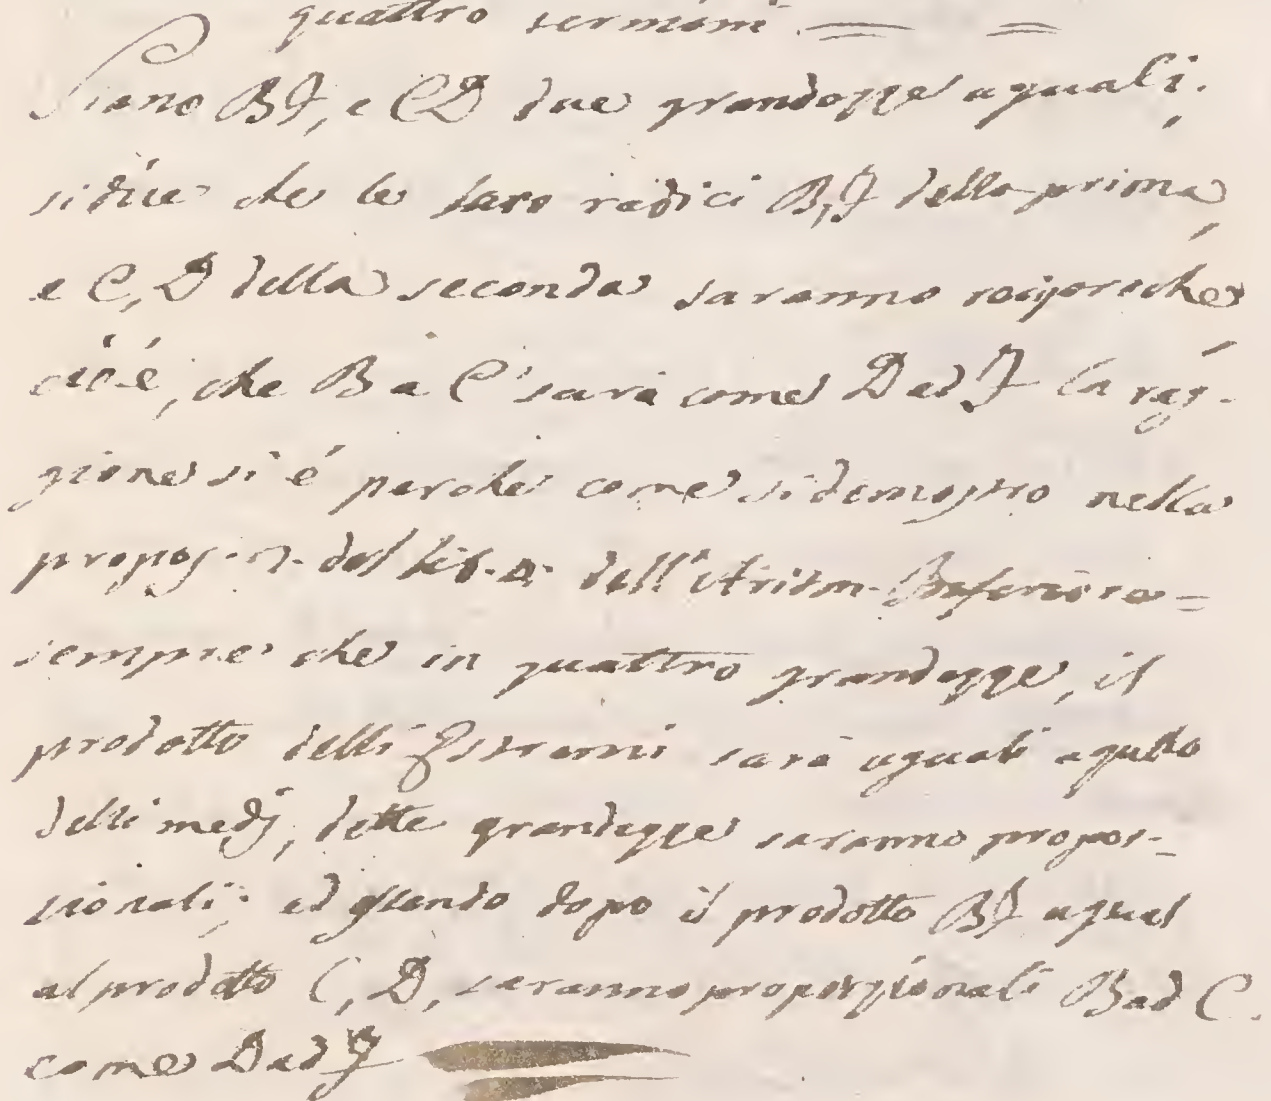 quattro termini.
Siano BF, e CD due grandezze aguali;
si dice che le loro radici B, F della prima,
e C, D della seconda saranno reciproche
cioé, che B a C sará come D ad F la rag-
gione si é perche come si demostro nella
propos. 7. del lib. 2. dell'Aritm. Inferiore
sempre che in quattro grandezze, il
prodotto delli Estremi sará uguali a quello
delli medj, dette grandezze saranno propor-
zionali; ed essendo dopo il prodotto BF agual
al prodotto C, D, saranno proporzionali B ad C.
come D ad F